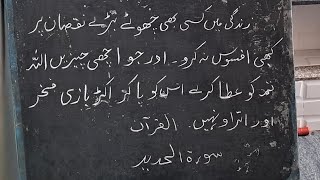 زندگی میں کسی بھی چھوٹے بڑے نقصان پر
کبھی افسوس نہ کرو۔ اور جو اچھی چیزیں اللہ
تم کو عطا کرے اس کو پا کر اکڑ بازی فخر
اور اتراو نہیں۔ القرآن
سورة الحدید